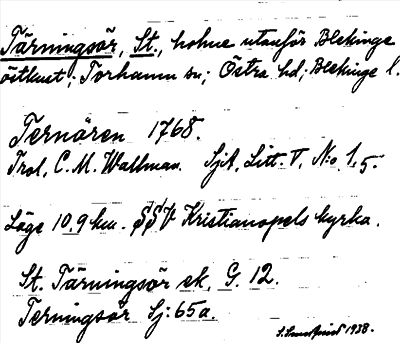 Tärningsör, St., holme utanför Blekinge
östkust; Torhamn sn; Östra hd; Blekinge l.
Ternören 1768.
Trol. C. M. Wallman. Sjk. Litt. V, N:o 1,5.
Läge 10,9 km. SSV Kristianopels kyrka.
St. Tärningsör ek. G. 12.
Terningsör Sj: 65a.
1938.